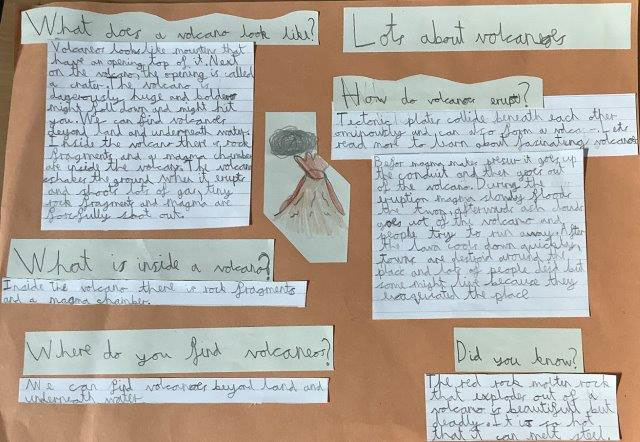 What does a volcano look like?
Volcanoes looks like mountens that
have an opening top of it. Next
on the volcano, the opening is called
a crater. The volcano is
dagerously huge and bolders
might roll down and might hit
you. We can find volcanoes
beyond land and underneath water.
Inside the volcano there is rock
fragments, and a magma chamber
are inside the volcano. The volcano
shakes the ground when it erupts
and shoot lots of gas, tiny
rock fragment and magma are
forcefully shoot out.
What is inside a volcano?
Inside the volcano there is rock fragments
and a magma chamber.
Where do you find volcaneos?
We can find volcanoes beyond land and
underneath water.
Lots about volcanoes
How do volcanoes erupt?
Tectonic plates collide beneath each other
and can also form a volcano. Lets
read more to learn about fascinating volcanoes
Befor magma makes it goes up
the conduit and then goes out
of the volcano. During the
eruption magma slowly floods
the town, afterwards ash clouds
goes out of the volcano and
people try to run away. After
the lava cools down quickley,
towns are around the
place and lots of people died but
some might live because they
the place
Did you know?
The red rock molten rock
that explodes out of a
volcano is beautifull but
deadly. It is so hot
that it can melt steel.